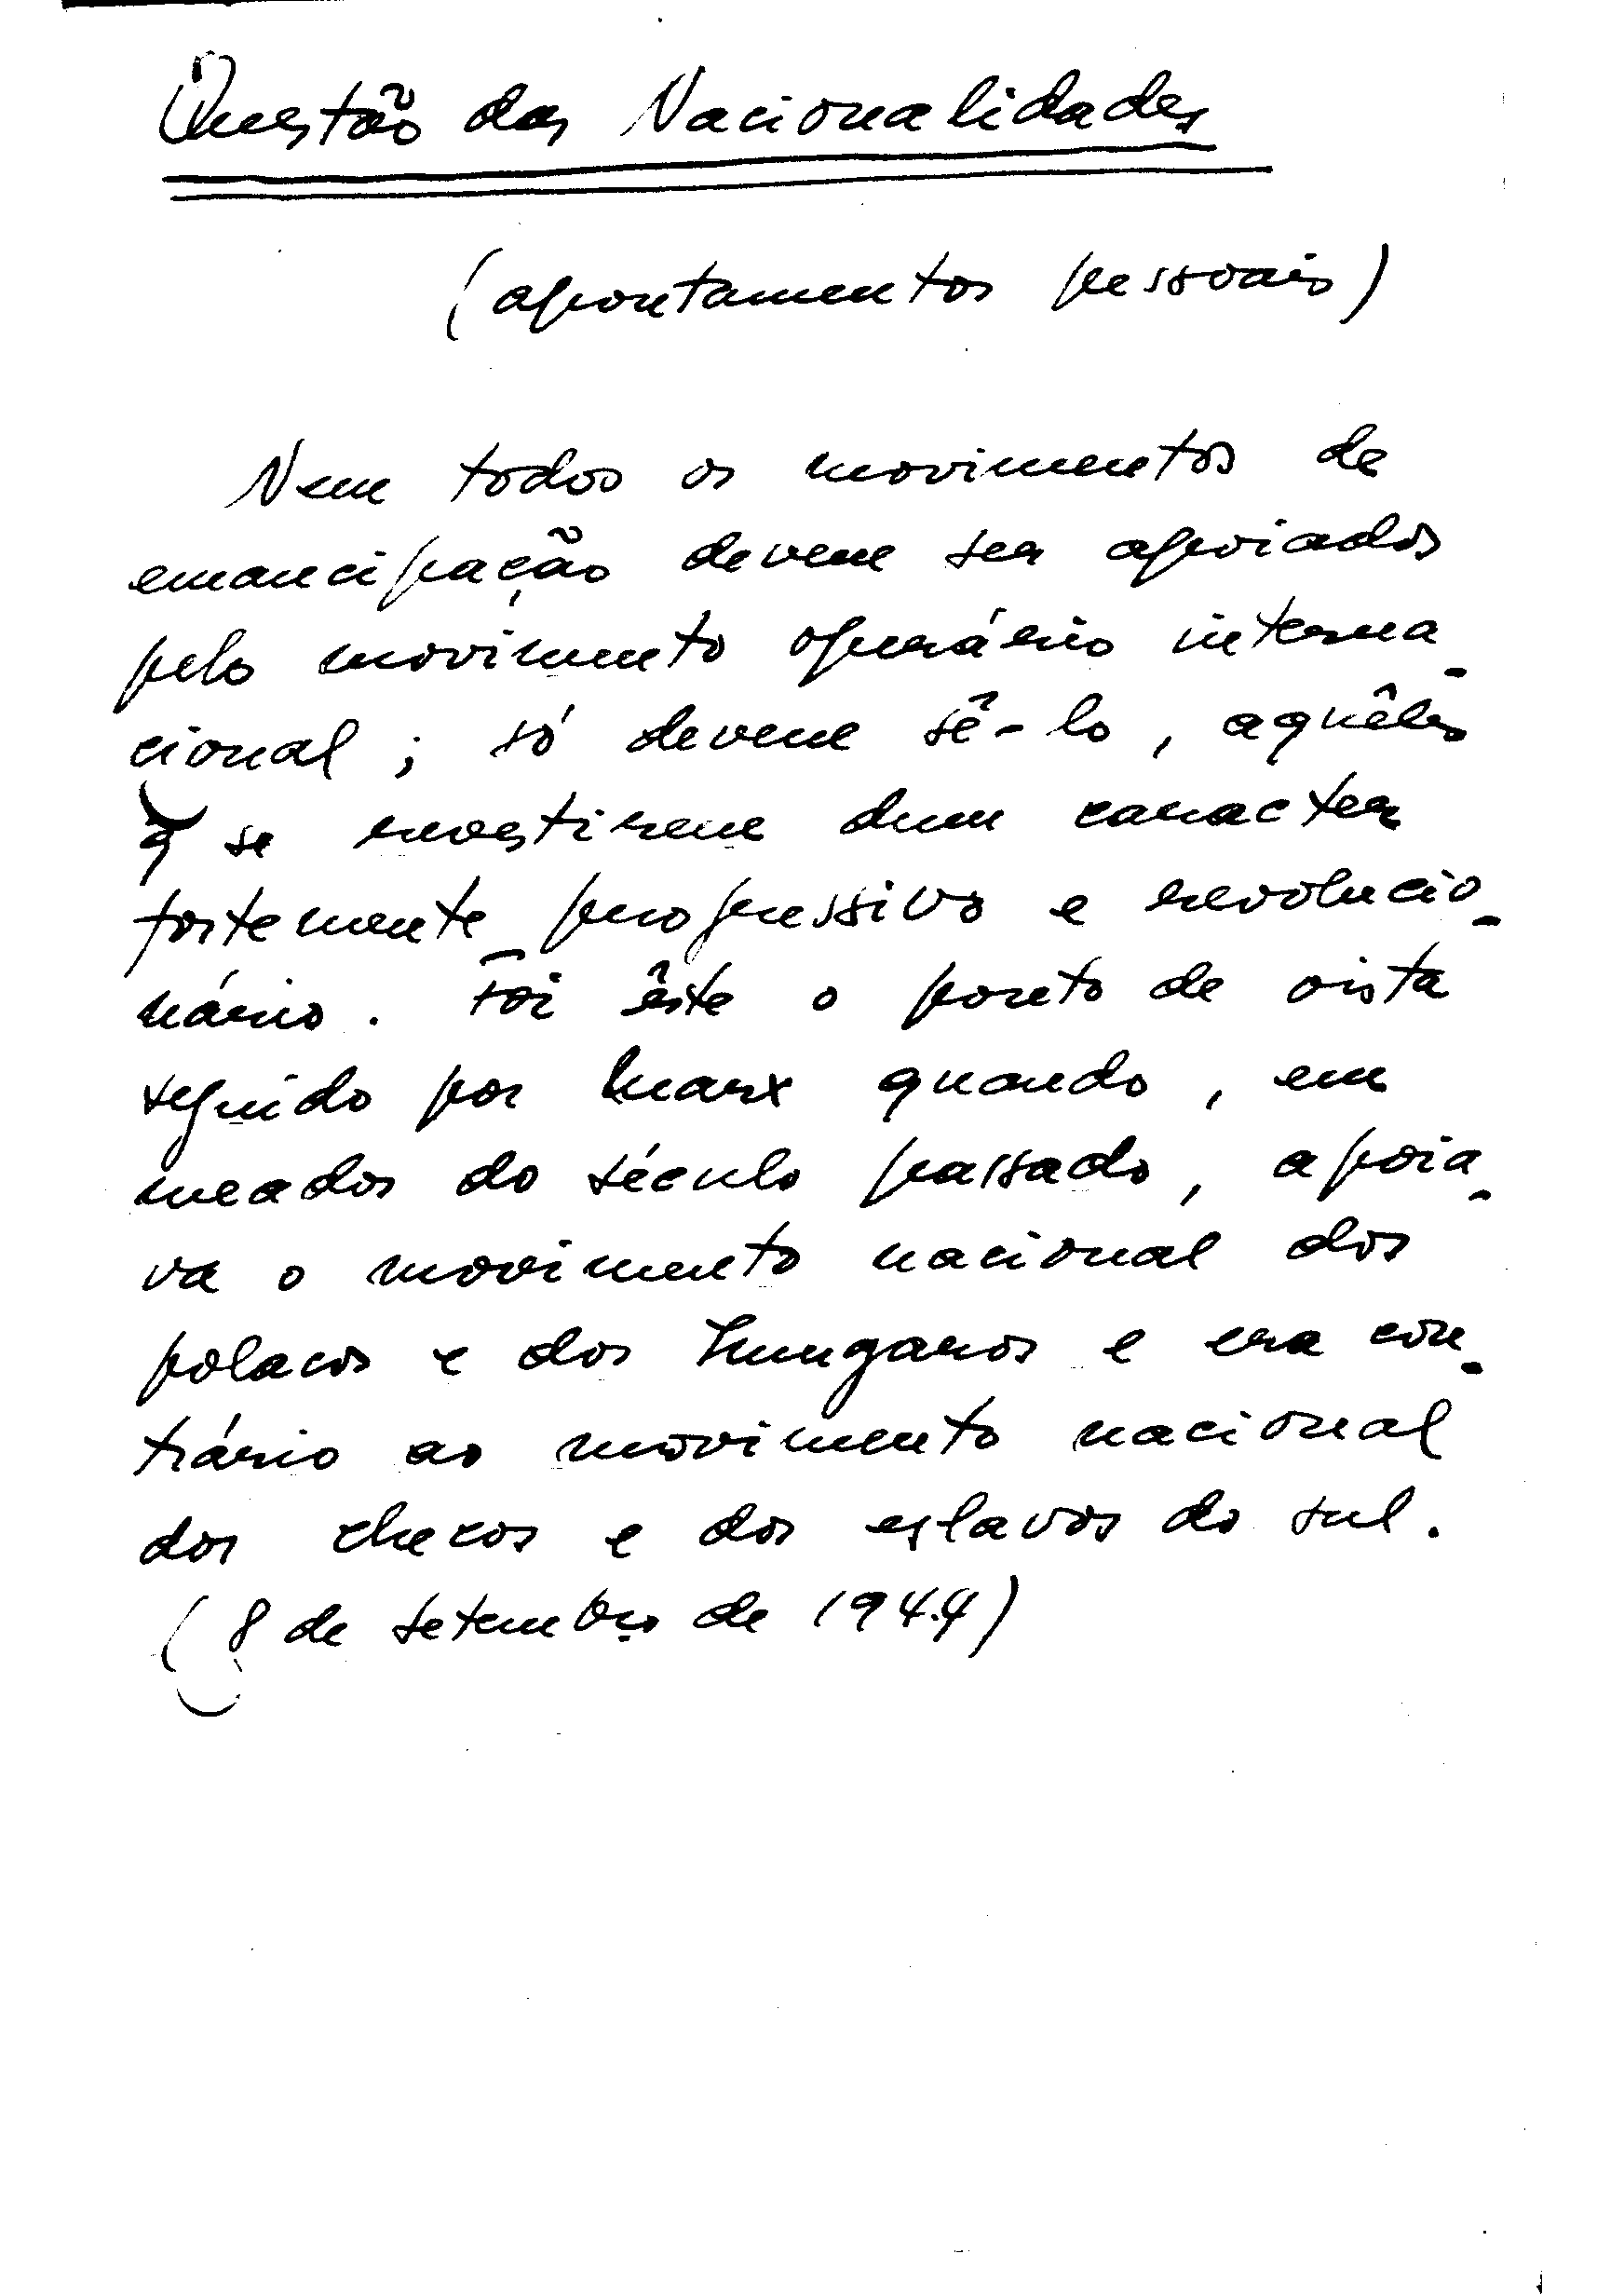 Questão das Nacionalidades
(apontamentos pessoais)
Nem todos os movimentos de
emancipação devem ser apoiados
pelo movimento operário interna-
cional; só devem sê-lo, aquêles
q̃ se revestirem dum caracter
fortemente progressivo e revolucio-
nário. Foi êste o ponto de vista
seguido por Marx quando, em
meados do século passado, apoia-
va o movimento nacional dos
polacos e dos hungaros e era con-
trário ao movimento nacional
dos checos e dos eslavos do sul.
(8 de setembro de 1944)